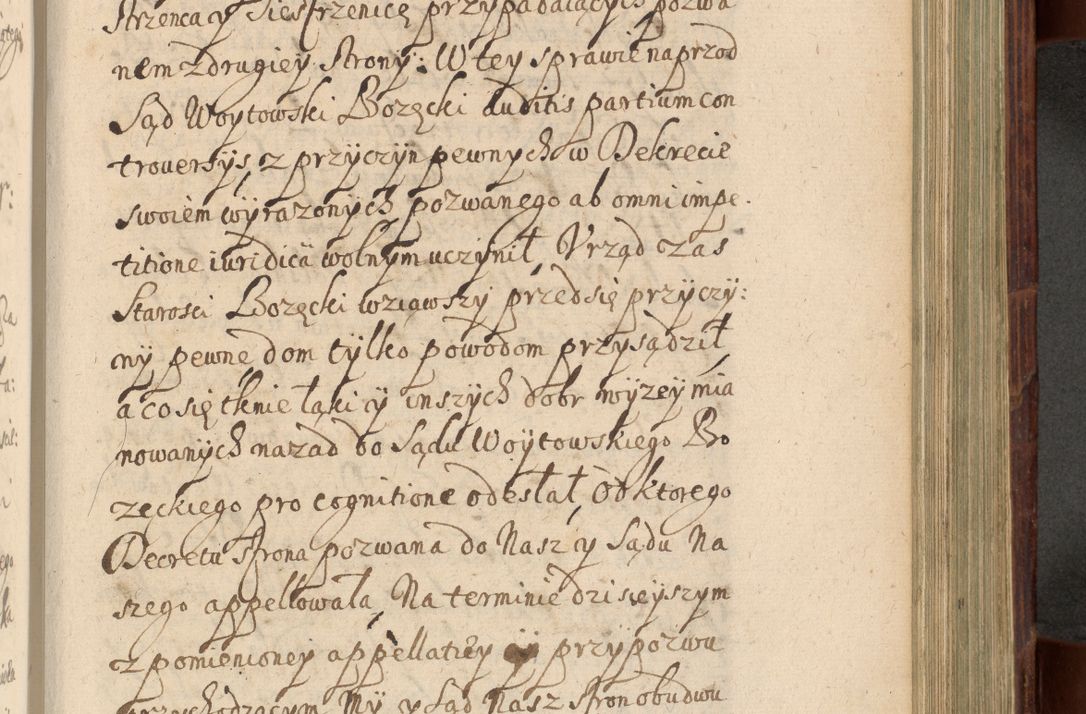 Strzenca y Siestrzenicę przypadaiących pozwa
nem z drugiey strony: W tey sprawie naprzod
Sąd Woytowski Bozęcki auditis partium con
troversÿs, z przÿczÿn pewnÿch w Dekrecie
swoiem wÿrazonÿch pozwanego ab omni impe.
titione iuridica wolnÿm uczÿnił, Vrząd zas
Starosci Bozęcki wziąwszÿ przedsię przÿczÿ:
nÿ pewne, dom tÿlko powodom przÿsądził,
a co się tknie łąki ÿ inszÿch dobr wÿzeÿ mia
nowanÿch nazad do Sądu Woÿtowskiego Bo
zęckiego pro cognitione odesłał, Od ktorego
Decretu strona pozwana do Nasz ÿ Sądu Na
szego appellowała, Na terminie dzisieÿszÿm
z pomienioneÿ appellatieÿ ÿ przÿpozwu
przÿchodzącÿm, Mÿ ÿ Sąd Nasz stron obudwu